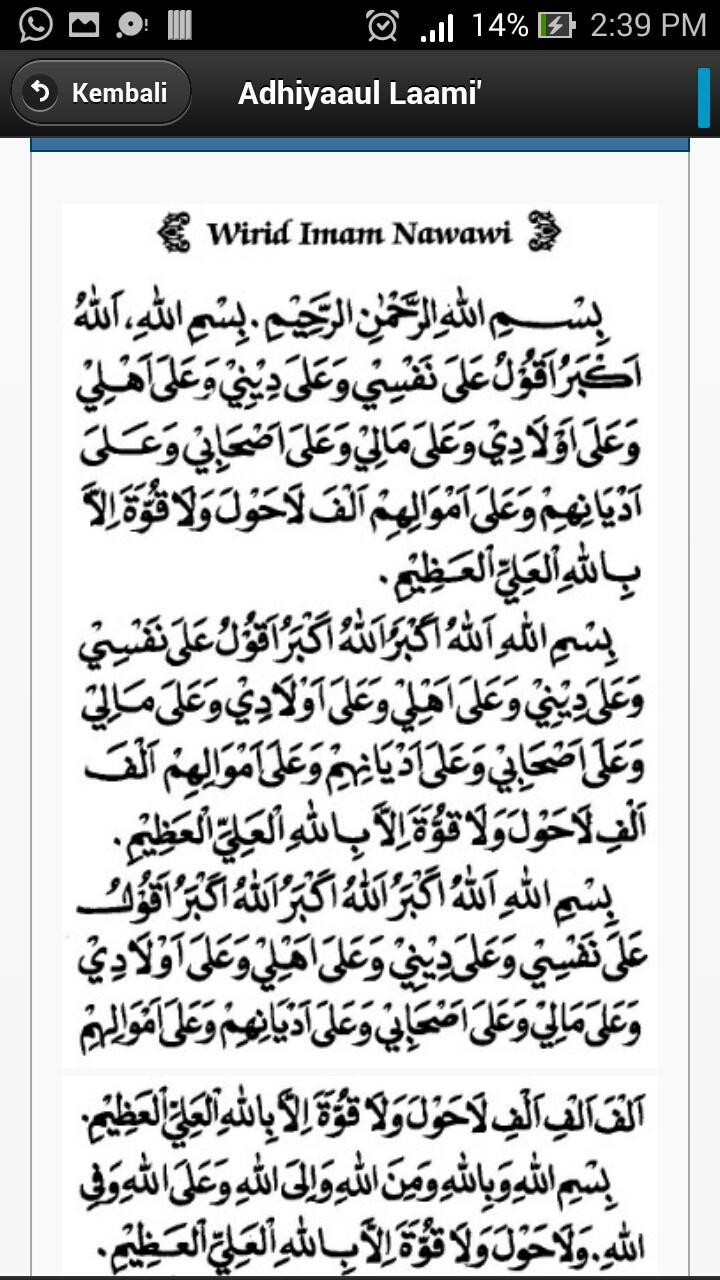 14% 2:39 PM
Kembali Adhiyaaul Laami'
Wirid Imam Nawawi
بِسْـــمِ اللهِ الرَّحْمٰنِ الرَّحِيْمِ. بِسْمِ اللهِ، اَللهُ
اَكْبَرُ اَقُوْلُ عَلَى نَفْسِيْ وَعَلَى دِيْنِيْ وَعَلَى اَهْلِيْ
وَعَلَى اَوْلَادِيْ وَعَلَى مَالِيْ وَعَلَى اَصْحَابِيْ وَعَـــلَى
اَدْيَانِهِمْ وَعَلَى اَمْوَالِهِمْ اَلْفَ لَاحَوْلَ وَلَا قُوَّةَ اِلاَّ
بِاللهِ الْعَلِيِّ الْعَـظِيْمِ.
بِسْمِ اللهِ اَللهُ اَكْبَرُ اَللهُ اَكْبَرُ اَقُوْلُ عَلَى نَفْسِيْ
وَعَلَى دِيْنِيْ وَعَلَى اَهْلِيْ وَعَلَى اَوْلَادِيْ وَعَلَى مَـالِيْ
وَعَلَى اَصْحَابِيْ وَعَلَى اَدْيَانِهِمْ وَعَلَى اَمْوَالِهِمْ اَلْفَ
اَلْفِ لَاحَوْلَ وَلَا قُوَّةَ اِلاَّ بِاللهِ الْعَلِيِّ الْعَظِيْمِ.
بِسْمِ اللهِ اَللهُ اَكْبَرُ اَللهُ اَكْبَرُ اَللهُ اَكْبَرُ اَقُوْلُ
عَلَى نَفْسِيْ وَعَلَى دِيْنِيْ وَعَلَى اَهْلِيْ وَعَلَى اَوْلَادِيْ
وَعَلَى مَالِيْ وَعَلَى اَصْحَابِيْ وَعَلَى اَدْيَانِهِمْ وَعَلَى اَمْوَالِهِمْ
اَلْفَ اَلْفِ اَلْفِ لَاحَوْلَ وَلَا قُوَّةَ اِلاَّ بِاللهِ الْعَلِيِّ الْعَظِيْمِ.
بِسْمِ اللهِ وَبِاللهِ وَمِنَ اللهِ وَاِلَى اللهِ وَعَلَى اللهِ وَفِى
اللهِ. وَلَاحَوْلَ وَلَا قُوَّةَ اِلاَّ بِـاللهِ الْعَلِيِّ الْعَـظِيْمِ.